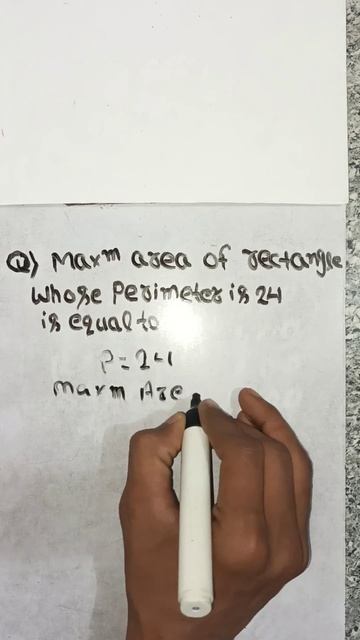 Q) Maxᵐ area of rectangle
Whose Perimeter is 24
is equal to
P = 24
Maxm Are